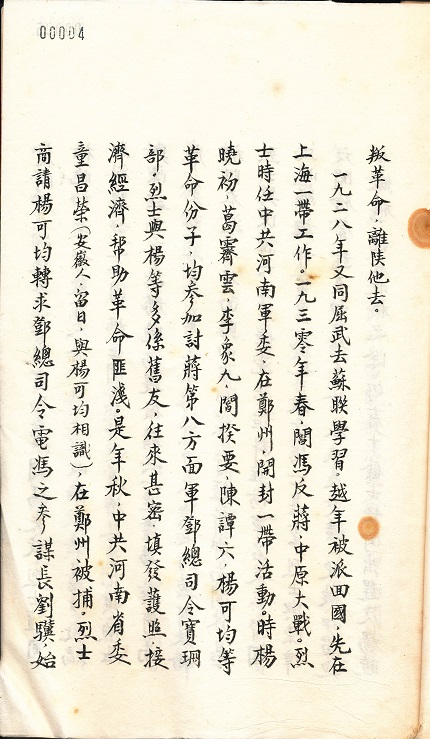 00004
叛革命，離陝他去。
一九二八年又同屈武去蘇联學習。越年被派回國，先在
上海一帶工作。一九三零年春，閻馮反蔣，中原大戰。烈
士時任中共河南軍委，在鄭州，開封一帶活動。時楊
曉初，葛霽雲，李象九，閻揆要，陳譚六，楊可均等
革命份子，均參加討蔣第八方面軍鄧總司令寶珊
部，烈士與楊等多係舊友，往來甚密，填發護照，接
濟經濟，帮助革命匪淺。是年秋，中共河南省委
童昌榮（安徽人，留日，與楊可均相識），在鄭州被捕。烈士
商請楊可均轉求鄧總司令電馮之參謀長劉驥，始